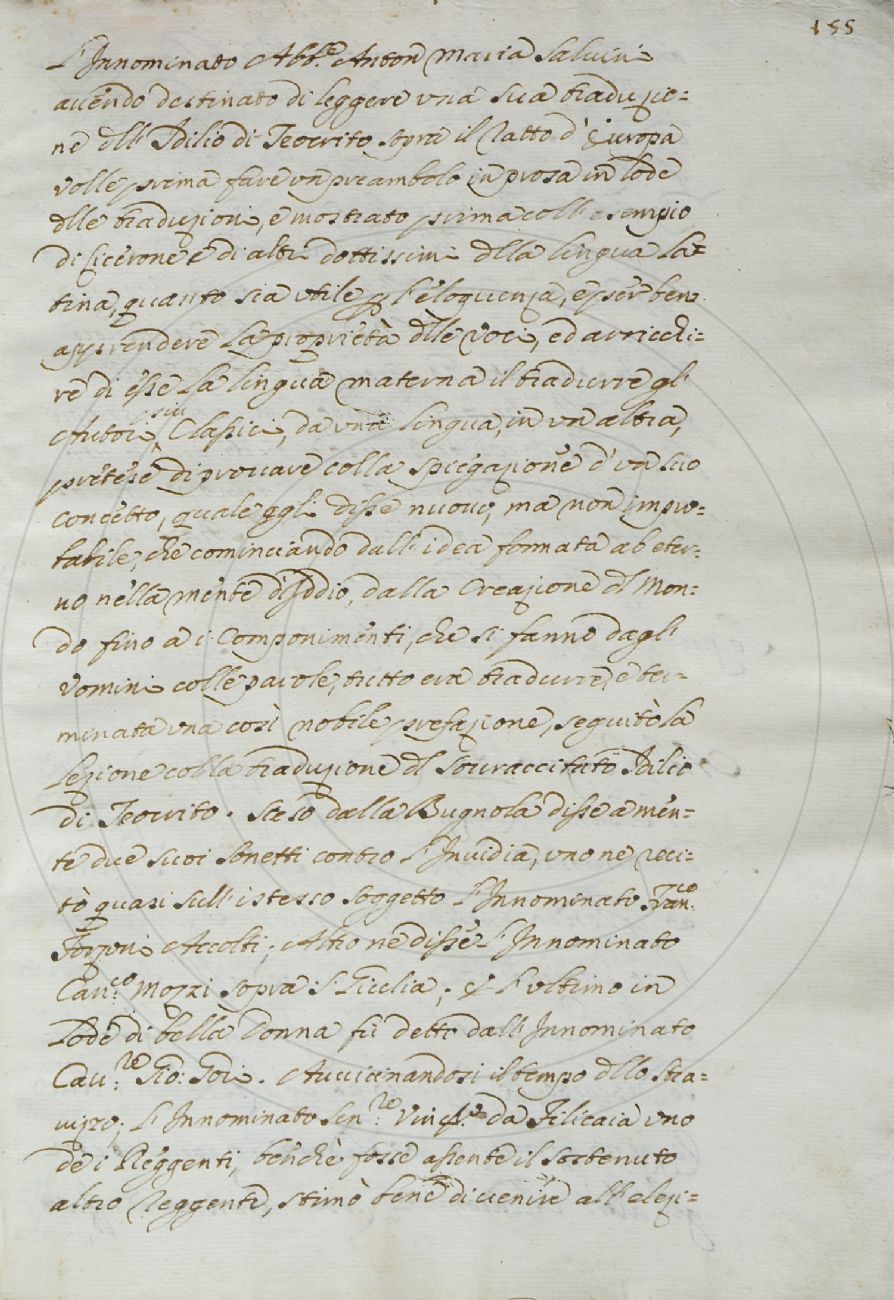 155
L'Innominato Abb.e Anton Maria Salvini
avendo destinato di leggere una sua traduzio=
ne dell'Idilio di Teocrito sopra il Ratto d'Europa
volle prima fare un preambolo in prosa in lode
dlle traduzioni, e mostrato prima coll'esempio
di Cicerone e di altri dottissimi dlla lingua la=
tina, quanto sia utile p l'eloquenza, e per ben
apprendere la proprietà dlle voci, ed arricchi=
re di esse la lingua materna il tradurre gl'
Autori più Classici, da una lingua, in un altra,
pretese di provare colla spiegazione d'un suo
concetto, quale egli disse nuovo, ma non impro=
babile, che cominciando dall'idea formata ab eter=
no nella mente d'Iddio, dalla Creazione dl Mon=
do fino a i Componimenti, che si fanno dagl'
Uomini colle parole, tutto era tradurre, e ter=
minata una così nobile prefazione, seguitò la
Lezione colla traduzione dl sovraccitato Idilio
di Teocrito. Sceso dalla Bugnola disse a men=
te due suoi Sonetti contro l'Invidia, uno ne reci=
tò quasi sull'istesso soggetto l'Innominato Fran.co
Forzoni Accolti; Altro ne disse l'Innominato
Can.co Mozzi sopra S. Cicilia; & l'ultimo in
Lode di bella Donna fu detto dall'Innominato
Cav.re Gio: Gori. Avvicinandosi il tempo dllo Stra=
vizzo; l'Innominato Sen.re Vinc.o da Filicaia uno
de i Reggenti, benchè fosse assente il sostenuto
altro Reggente, stimò bene di venire all'elezi=